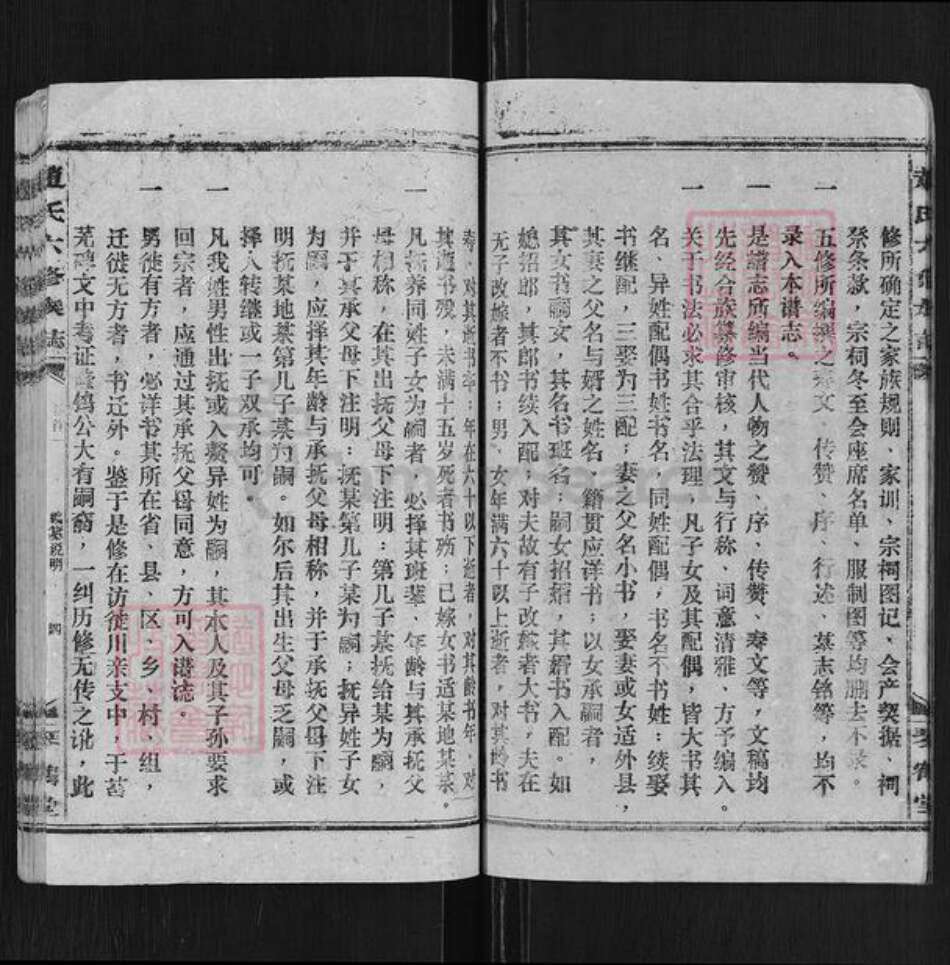 修所确定之家族规则、家训、宗祠图记、会产契据、祠
祭条款，宗祠冬至会座席名单、服制图等均删去不录。
一 五修所编撰之寿文、传赞、序、行述、墓志铭等，均不
录入本谱志。
一 是谱志所编当代人物之赞、序、传赞、寿文等，文稿均
先经合族纂修审核，其文与行称、词意清雅、方予编入。
一 关于书法必求其合乎法理，凡子女及其配偶，皆大书其
名、异姓配偶书姓书名，同姓配偶，书名不书姓；续娶
书继配，三娶为三配；妻之父名小书，娶妻或女适外县，
其妻之父名与婿之姓名，籍贯应详书；以女承嗣者，
其女书嗣女，其名书班名；嗣女招婿，其婿书入配。如
媳招郎，其郎书续入配；对夫故有子改嫁者大书，夫在
无子改嫁者不书；男、女年满六十以上逝者，对其龄书
寿、对其逝书卒；年在六十以下逝者，对其龄书年，对
其逝书殁，未满十五岁死者书殇；已嫁女书适某地某某。
一 凡抚养同姓子女为嗣者，必择其班辈、年龄与其承抚父
母相称，在其出抚父母下注明：第几子某抚给某为嗣，
并于其承父母下注明：抚某第几子某为嗣；抚异姓子女
为嗣，应择其年龄与承抚父母相称，并于承抚父母下注
明抚某地某第几子某为嗣。如尔后其出生父母乏嗣，或
择人转继或一子双承均可。
一 凡我姓男性出抚或入赘异姓为嗣，其本人及其子孙要求
回宗者，应通过其承抚父母同意，方可入谱志。
一 男徙有方者，必详书其所在省、县、区、乡、村、组，
迁徙无方者，书迁外。鉴于是修在访徙川亲支中，于荅
芜碑文中考证隆镐公大有嗣裔，一纠历修无传之讹，此
赵氏六修族志
卷首
戎墓说明
四
琴鹤堂